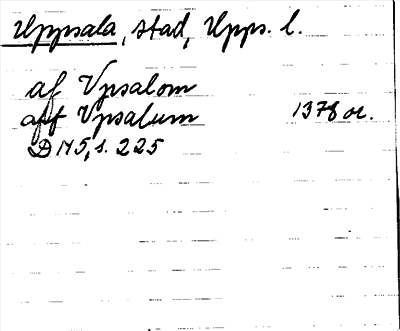 Uppsala, stad, Upps. l.
af Vpsalom
aff Vpsalum 1378 or.
DN 5, s. 225